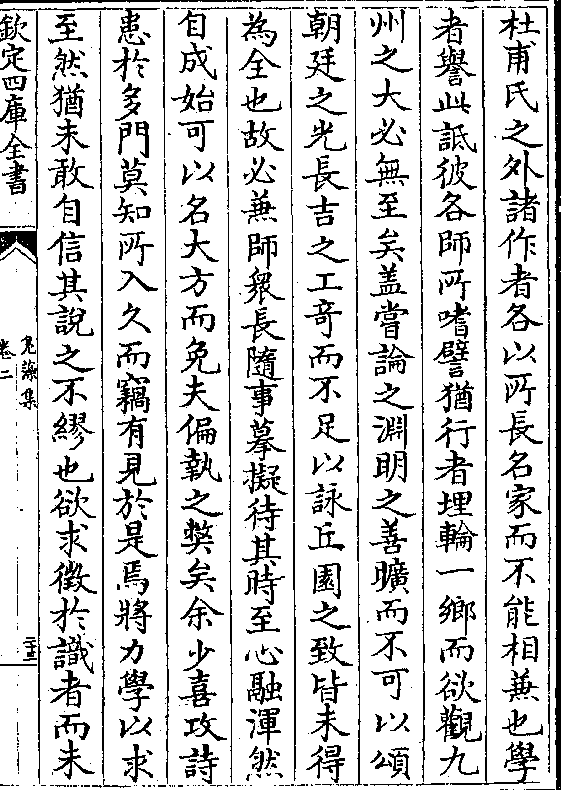 杜甫氏之外諸作者各以所長名家而不能相兼也學
者譽此詆彼各師所嗜譬猶行者埋輪一鄉而欲觀九
州之大必無至矣盖嘗論之淵明之善曠而不可以頌
朝廷之光長吉之工奇而不足以詠丘園之致皆未得
為全也故必兼師衆長隨事摹擬待其時至心融渾然
自成始可以名大方而免夫偏執之弊矣余少喜攻詩
患於多門莫知所入久而竊有見於是焉將力學以求
至然猶未敢自信其說之不繆也欲求徵於識者而未
欽定四庫全書
鳧藻集
卷二
二十三